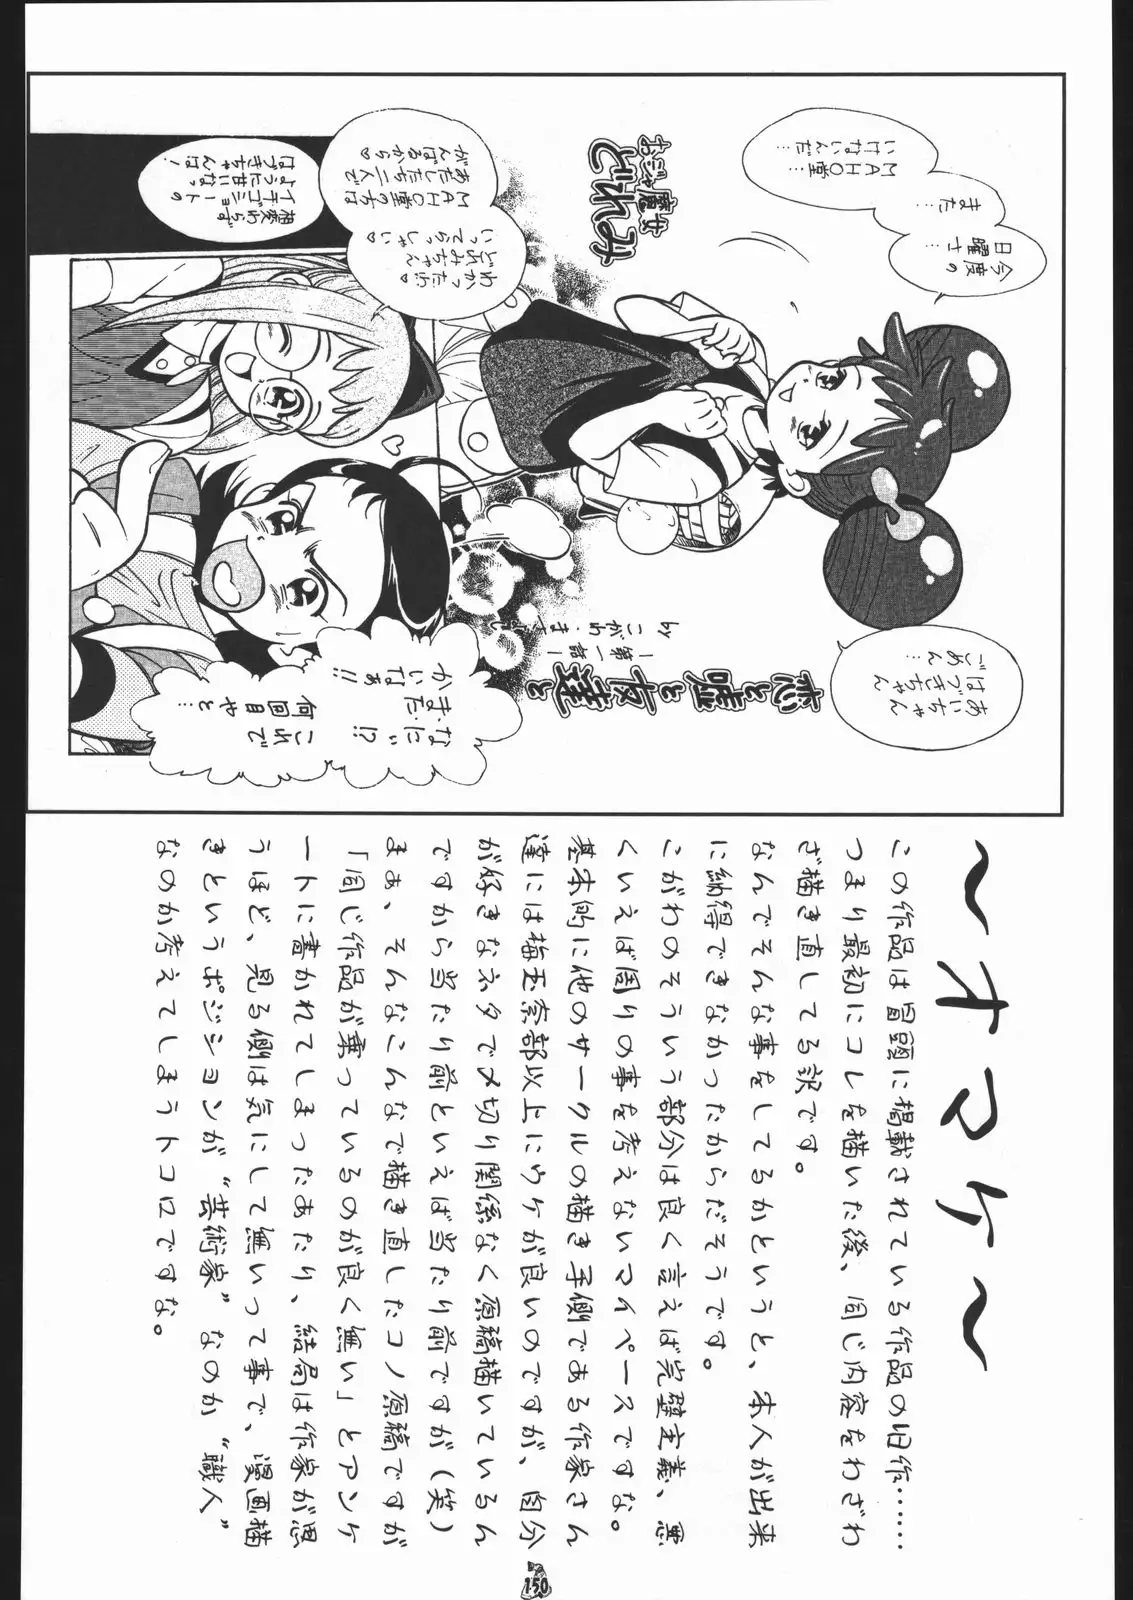 今度の
日曜さ…
また…
MAHO堂…
いけないんだ…
おジャ魔女
どれみ
あいちゃん
はづきちゃん
ごめん…
恋と
嘘と
友達と
ー第一話ー
わかったわ♡
どれみちゃん
いってらっしゃい♡
MAHO堂の方は
あたしたち二人で
がんばるから♡
相変わらず
イチゴショートの
ように甘いなっ
はづきちゃんは!
なに!?
また
かいなぁ!!
これで
何回目やと…
～オマケ～
この作品は冒頭に掲載されている作品の旧作……
つまり最初にコレを描いた後、同じ内容をわざわ
ざ描き直してる訳です。
なんでそんな事をしてるかというと、本人が出来
に納得できなかったからだそうです。
こがわのそういう部分は良く言えば完璧主義、悪
くいえば周りの事を考えないマイペースですな。
基本的に他のサークルの描き手側である作家さん
達には梅玉奈部以上にウケが良いのですが、自分
が好きなネタで〆切り関係なく原稿描いているん
ですから当たり前といえば当たり前ですが(笑)
まぁ、そんなこんなで描き直したコノ原稿ですが
「同じ作品が乗っているのが良く無い」とアンケ
ートに書かれてしまったあたり、結局は作家が思
うほど、見る側は気にして無いって事で、漫画描
きというポジションが“芸術家”なのか“職人”
なのか考えてしまうトコロですな。
150